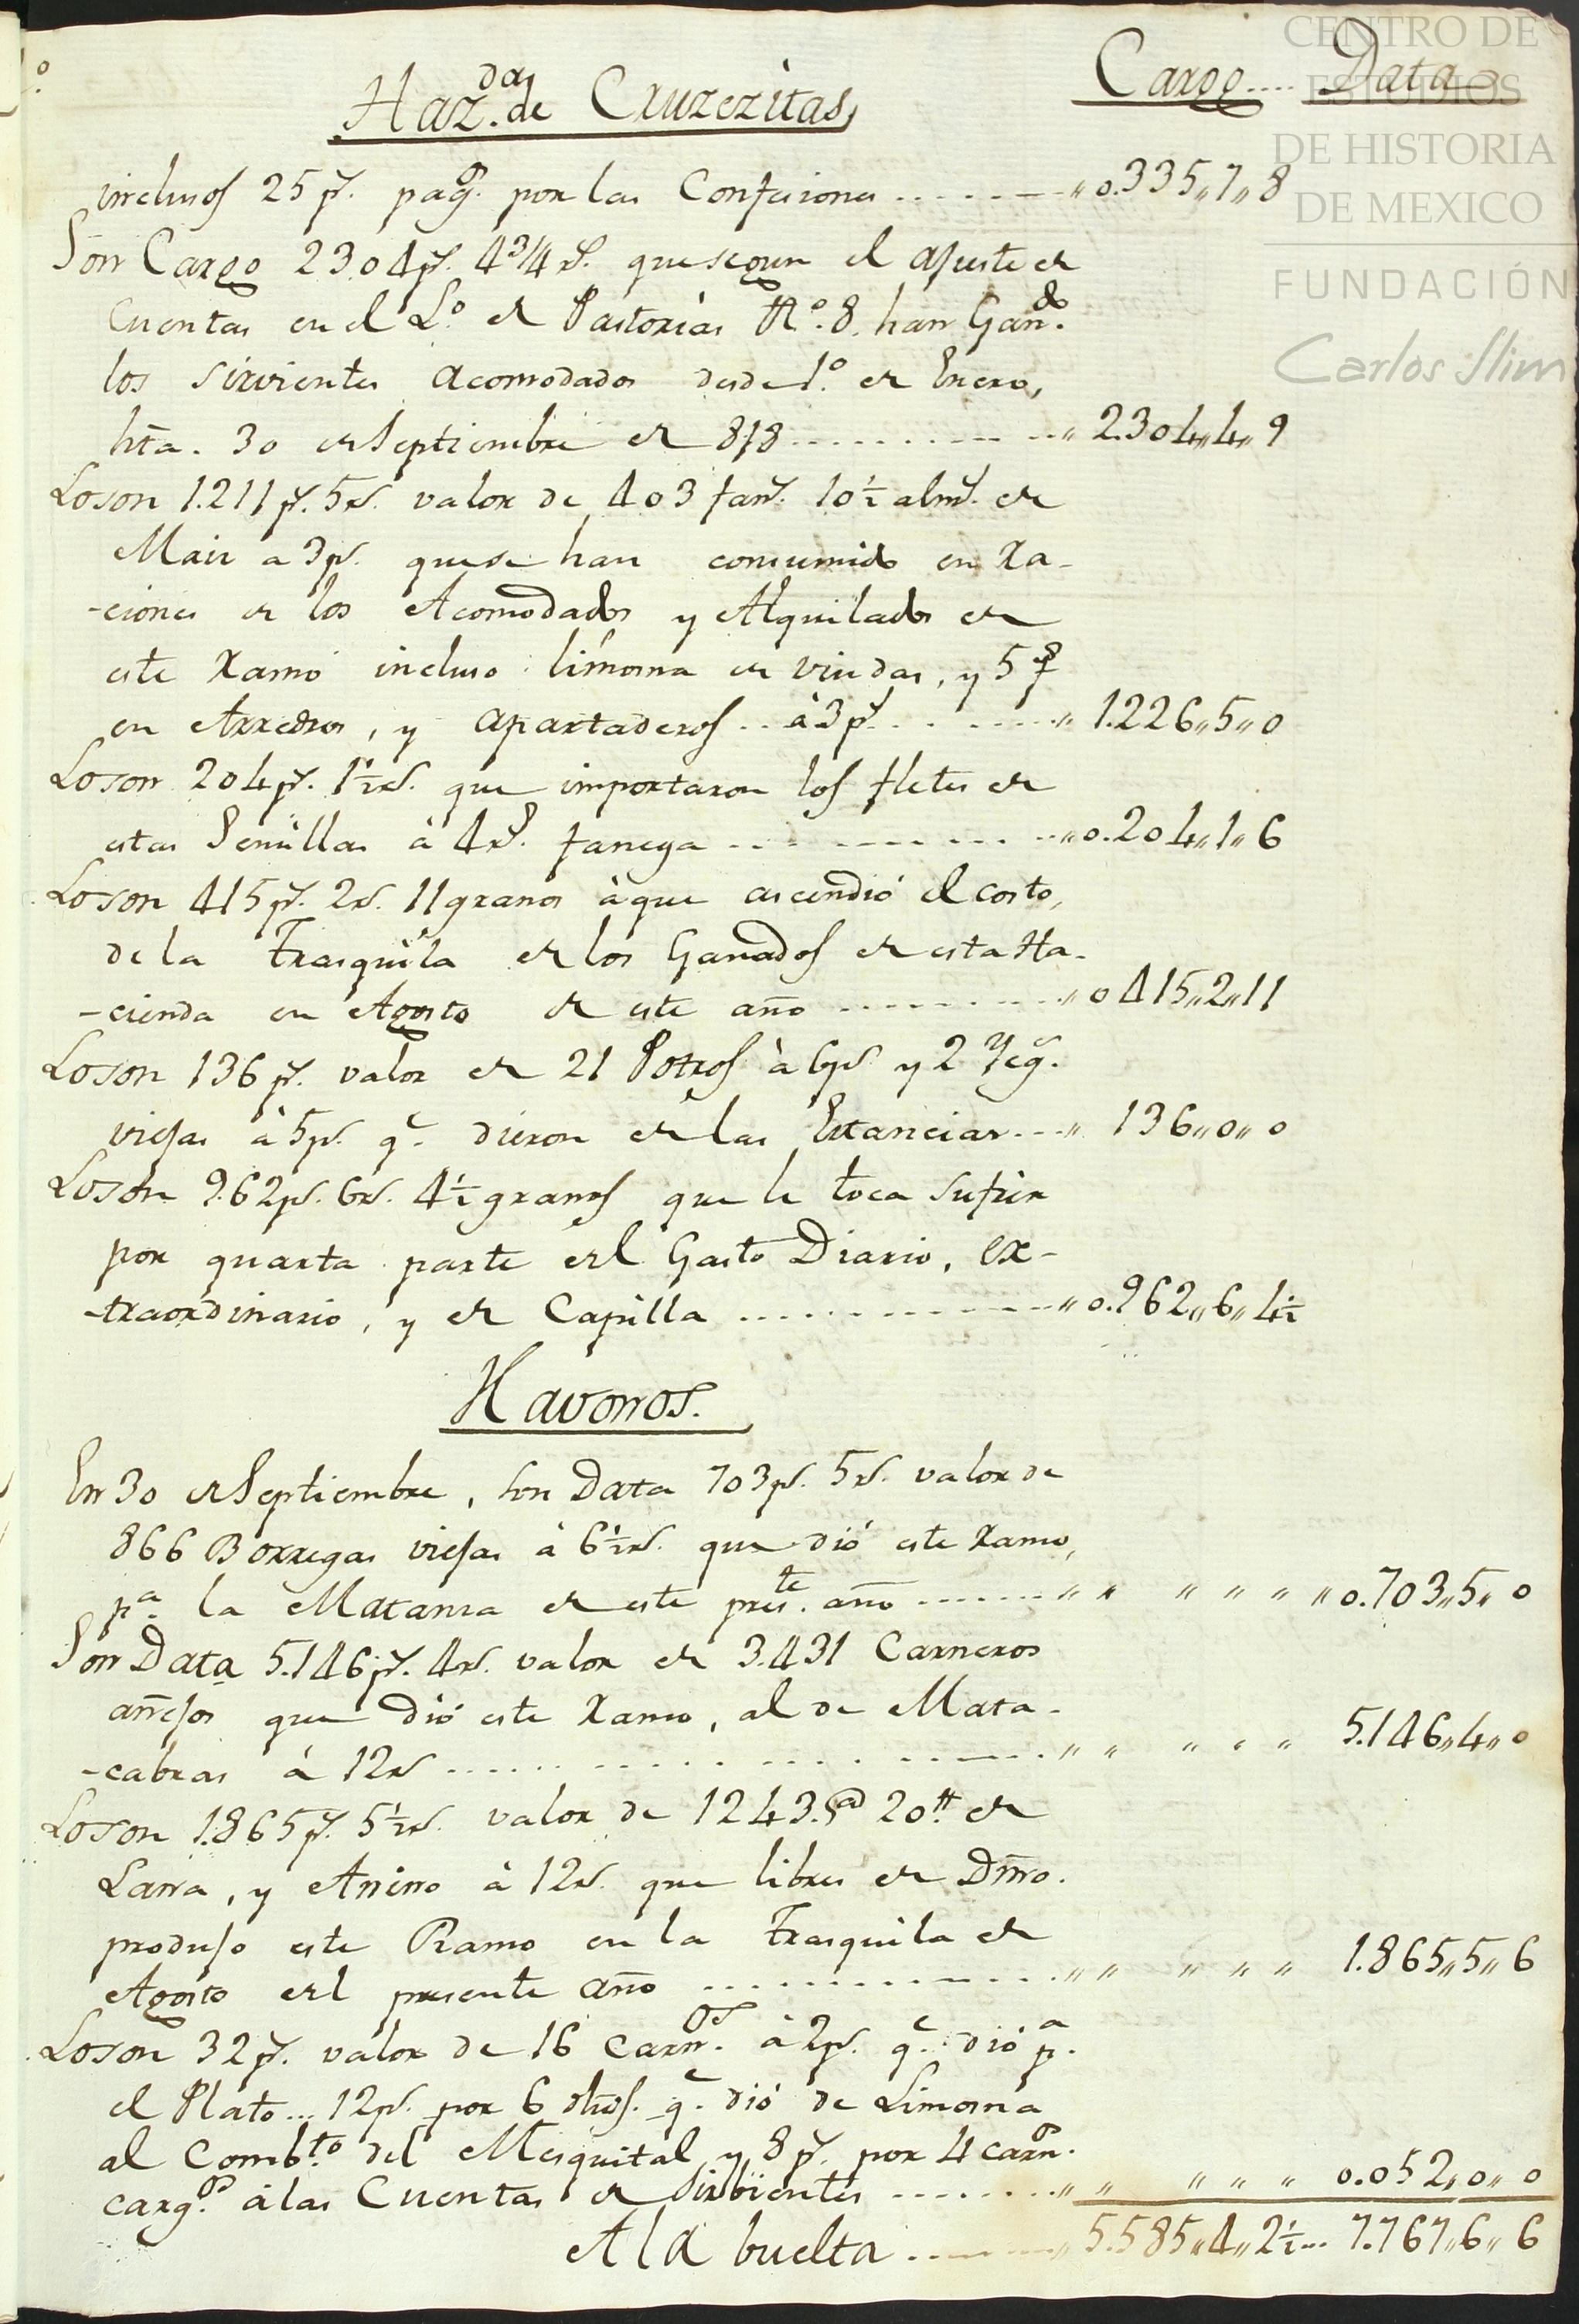 Cargo.... Data
Haz.da de Cruzezitas
inclusos 25 p.s pag.os por las Confesiones ........ „ 0.335„7„8
Son Cargo 2304 p.s 4 3/4 r.s que segun el ajuste de
Cuentas en el L.o de Pastorias N.o 8. han Gan.do
los sirvientes acomodados desde 1.o de Enero,
hta. 30 de Septiembre de 818 .......... „ 2.304„4„9
Loson 1.211 p.s 5 r.s valor de 403 fan.s 10 1/2 alm.s de
Mais a 3 p.s que se han consumido en Ra-
-ciones de los Acomodados y Alquilados de
este Ramo incluso limosna de viudas, y 5 f.s
en Arredros, y apartaderos .. à 3 p.s ....... „ 1.226„5„0
Loson 204 p.s 1 1/2 r.s que importaron los fletes de
estas Semillas à 4 r.s fanega .......... „ 0.204„1„6
Loson 415 p.s 2 r.s 11 granos à que ascendió el costo,
de la Trasquila de los Ganados de esta Ha-
-cienda en Agosto de este año .......... „ 0 415„2„11
Loson 136 p.s valor de 21 Potros à 6 p.s y 2 Yeg.s
viejas à 5 p.s q.e dieron de las Estancias .... „ 136„0„0
Loson 962 p.s 6 r.s 4 1/2 granos que le toca sufrir
por quarta parte del Gasto Diario, ex-
-traordinario, y de Capilla ............ „ 0.962„6„4 1/2
Havonos.
En 30 de Septiembre, son Data 703 p.s 5 r.s valor de
866 Borregas viejas à 6 1/2 r.s que dió este Ramo,
p.a la Matansa de este pres.te año ....... „ „ „ „ „ „ 0.703„5„0
Son Data 5.146 p.s 4 r.s valor de 3.431 Carneros
añejos que dió este Ramo, al de Mata-
-cabras à 12 r.s .............. „ „ „ „ „ 5.146„4„0
Loson 1.865 p.s 5 1/2 r.s valor de 1243. @ 20 tt de
Lana, y Anino à 12 r.s que libres de Dmo.
produjo este Ramo en la Trasquila de
Agosto del presente año ............ „ „ „ „ „ 1.865„5„6
Loson 32 p.s valor de 16 carn.os à 2 p.s q.e dió p.a
el Plato... 12 p.s por 6 dhos. q.e dió de Limosna
al Comb.to del Mesquital y 8 p.s por 4 carn.os
carg.os à las Cuentas de Sirbientes ........ „ „ „ „ „ 0.052„0„0
A la buelta ........ „ 5.585„4„2 1/2... 7.767„6„6
CENTRO DE
ESTUDIOS
DE HISTORIA
DE MEXICO
FUNDACIÓN
Carlos Slim